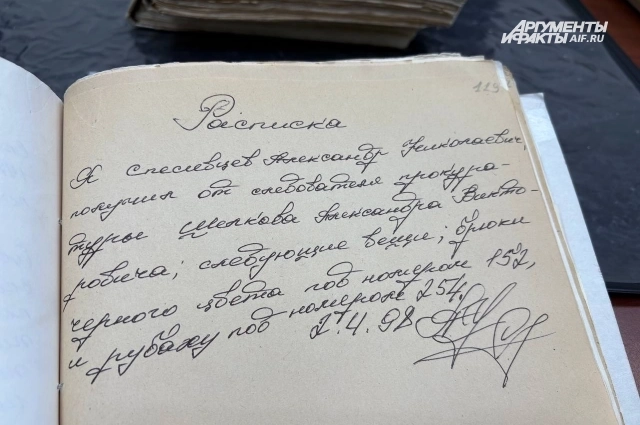 АРГУМЕНТЫ
И ФАКТЫ AIF.RU
119
Расписка
Я Спесивцев Александр Николаевич,
получил от следователя прокура-
туры Шелкова Александра Викто-
ровича; следующие вещи; брюки
черного цвета под номером 152,
и рубаху под номером 254.
27.4.98